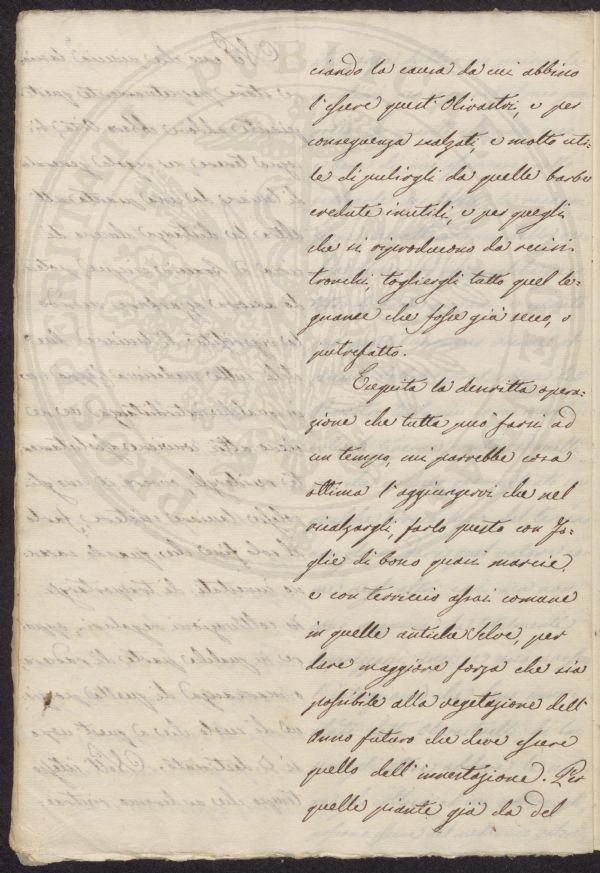 ciando la causa da cui abbino
l'essere quest'Olivastri, e per
conseguenza scalzati, e molto uti=
le di pulirgli da quelle barbe
credute inutili, e per quegli
che si riproducono da recisi
tronchi, togliergli tutto quel le=
gname che fosse già secco, o
putrefatto.
Eseguita la descritta opera=
zione che tutta può farsi ad
un tempo, mi parrebbe cosa
ottima l'aggiungervi che nel
rincalzargli, farlo questo con fo=
glie di bosco quasi marcie
e con terriccio assai comune
in quelle antiche Selve, per
dare maggiore forza che sia
possibile alla vegetazione dell'
Anno futuro che deve essere
quello dell'innestazione. Per
quelle piante già da del